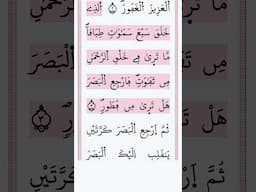 اَ۬لْعَزِيزُ اُ۬لْغَفُورُ اُ۬لذِے
خَلَقَ سَبْعَ سَمَٰوَٰتٖ طِبَاقاٗ
مَّا تَر۪يٰ فِے خَلْقِ اِ۬لرَّحْمَٰنِ
مِن تَفَٰوُتٖ فَارْجِعِ اِ۬لْبَصَرَ
هَلْ تَر۪يٰ مِن فُطُورٖ
ثُمَّ اَ۪رْجِعِ اِ۬لْبَصَرَ كَرَّتَيْنِ
يَنقَلِبِ اِلَيْكَ اَ۬لْبَصَرُ